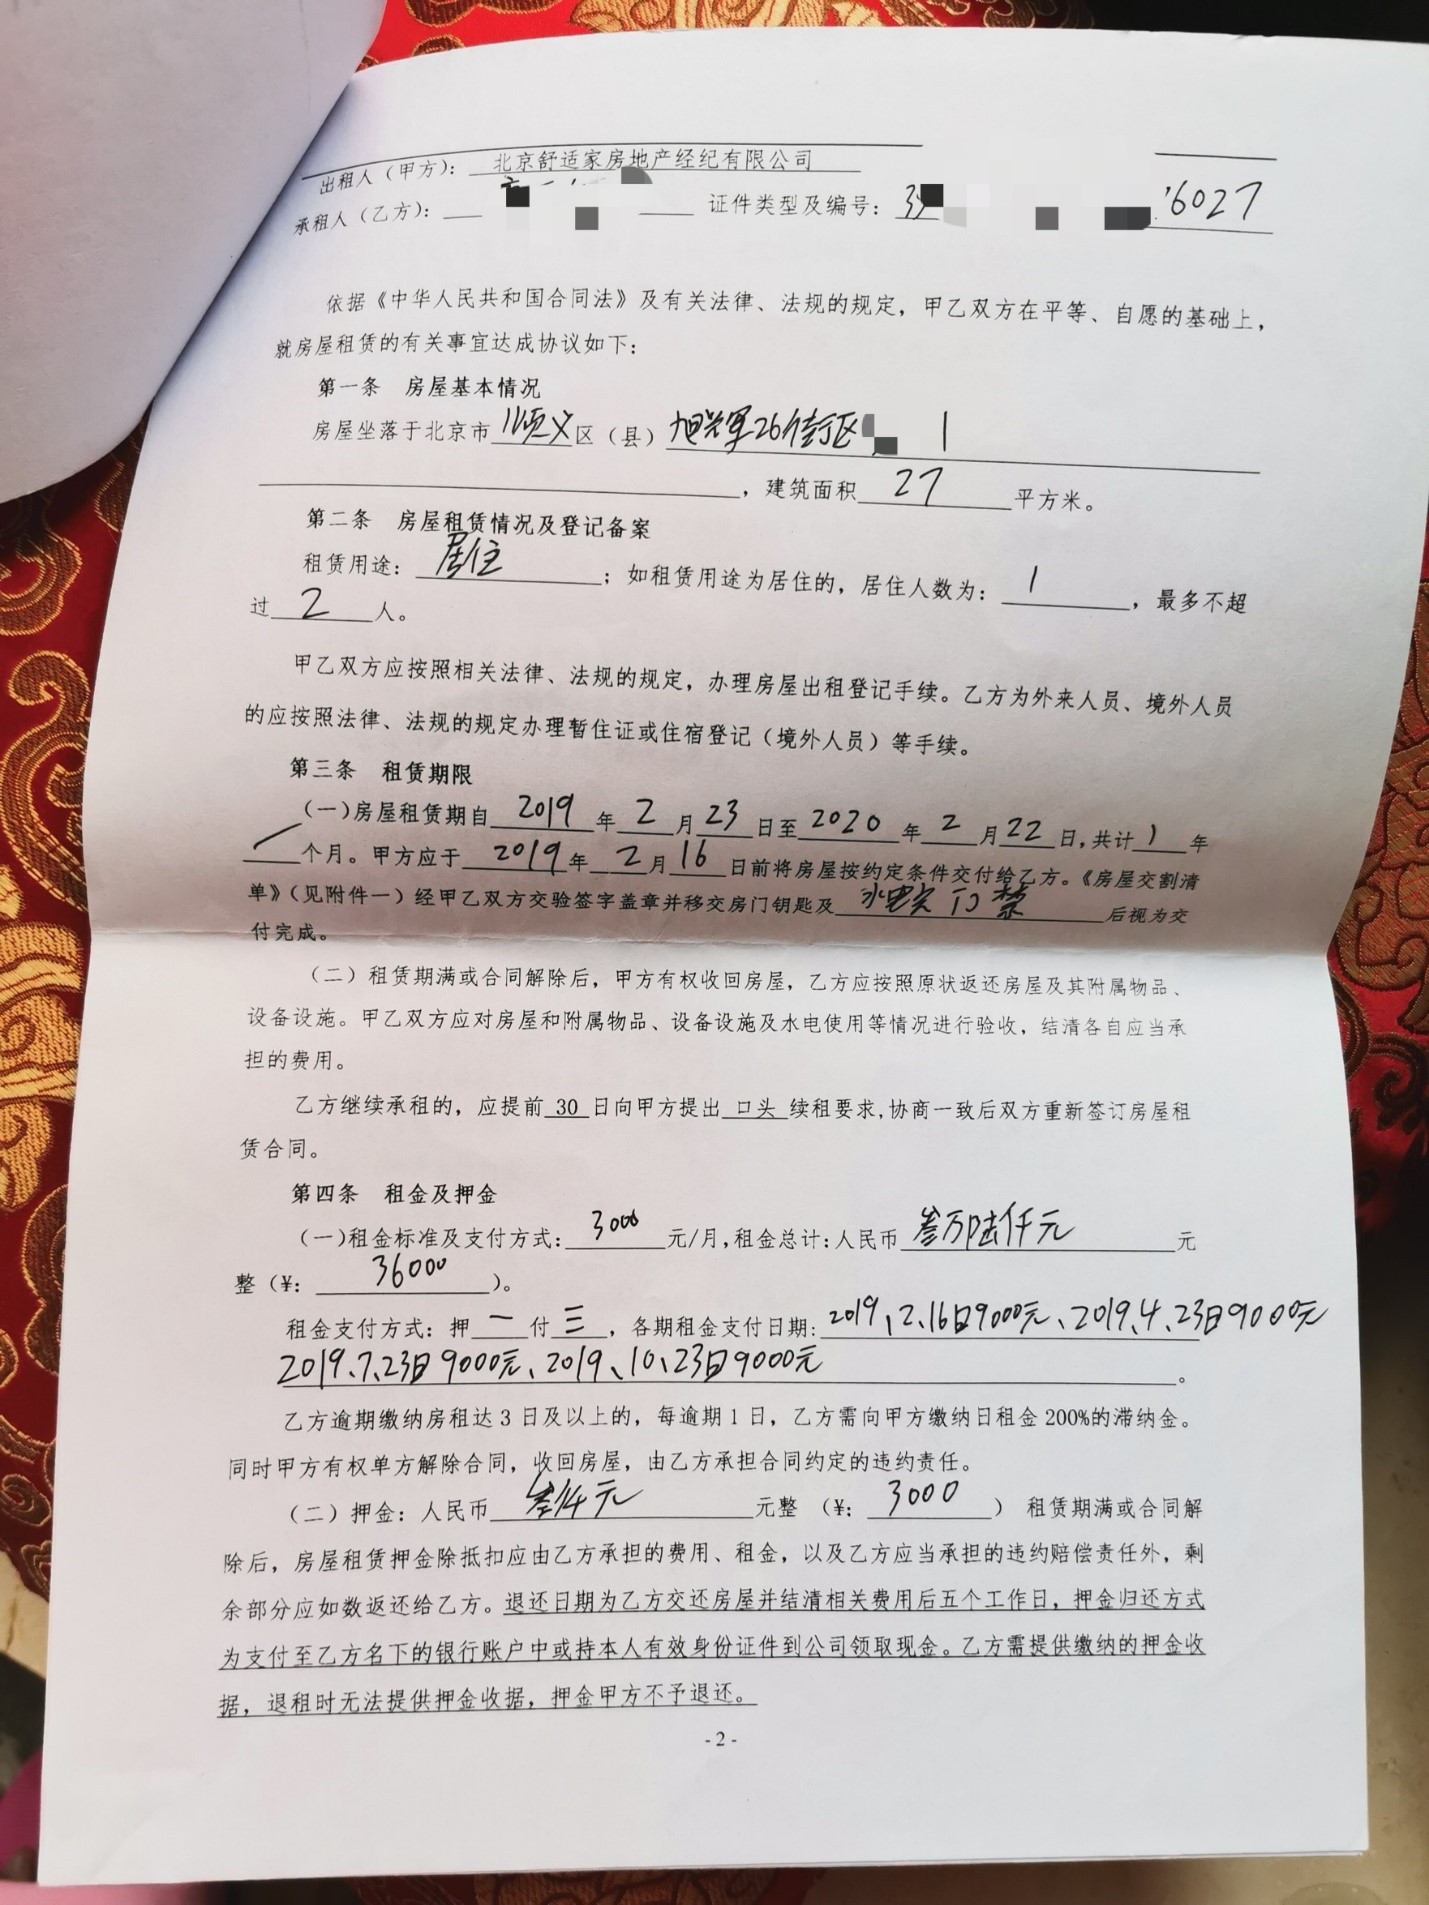 出租人（甲方）：北京舒适家房地产经纪有限公司
承租人（乙方）： 证件类型及编号： 6027
依据《中华人民共和国合同法》及有关法律、法规的规定，甲乙双方在平等、自愿的基础上，
就房屋租赁的有关事宜达成协议如下：
第一条 房屋基本情况
房屋坐落于北京市顺义区（县） 26街区 1
，建筑面积27平方米。
第二条 房屋租赁情况及登记备案
租赁用途：居住；如租赁用途为居住的，居住人数为：1，最多不超
过2人。
甲乙双方应按照相关法律、法规的规定，办理房屋出租登记手续。乙方为外来人员、境外人员
的应按照法律、法规的规定办理暂住证或住宿登记（境外人员）等手续。
第三条 租赁期限
（一）房屋租赁期自2019年2月23日至2020年2月22日，共计1年
/个月。甲方应于2019年2月16日前将房屋按约定条件交付给乙方。《房屋交割清
单》（见附件一）经甲乙双方交验签字盖章并移交房门钥匙及 门禁后视为交
付完成。
（二）租赁期满或合同解除后，甲方有权收回房屋，乙方应按照原状返还房屋及其附属物品、
设备设施。甲乙双方应对房屋和附属物品、设备设施及水电使用等情况进行验收，结清各自应当承
担的费用。
乙方继续承租的，应提前30日向甲方提出口头续租要求，协商一致后双方重新签订房屋租
赁合同。
第四条 租金及押金
（一）租金标准及支付方式：3000元/月，租金总计：人民币叁万陆仟元元
整（¥：36000）。
租金支付方式：押一付三，各期租金支付日期：2019、2、16日9000元、2019、4、23日9000元
2019、7、23日9000元、2019、10、23日9000元。
乙方逾期缴纳房租达3日及以上的，每逾期1日，乙方需向甲方缴纳日租金200%的滞纳金。
同时甲方有权单方解除合同，收回房屋，由乙方承担合同约定的违约责任。
（二）押金：人民币叁仟元元整（¥：3000）租赁期满或合同解
除后，房屋租赁押金除抵扣应由乙方承担的费用、租金，以及乙方应当承担的违约赔偿责任外，剩
余部分应如数返还给乙方。退还日期为乙方交还房屋并结清相关费用后五个工作日，押金归还方式
为支付至乙方名下的银行账户中或持本人有效身份证件到公司领取现金。乙方需提供缴纳的押金收
据，退租时无法提供押金收据，押金甲方不予退还。
- 2 -